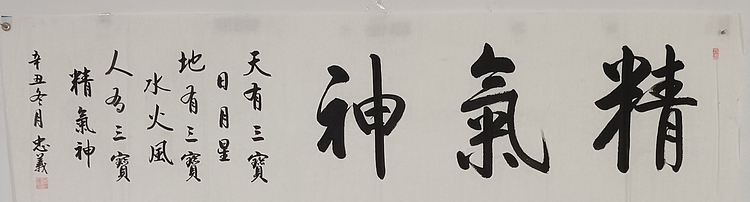 精氣神
天有三寳
日月星
地有三寳
水火風
人為三寳
精氣神
辛丑冬月忠義